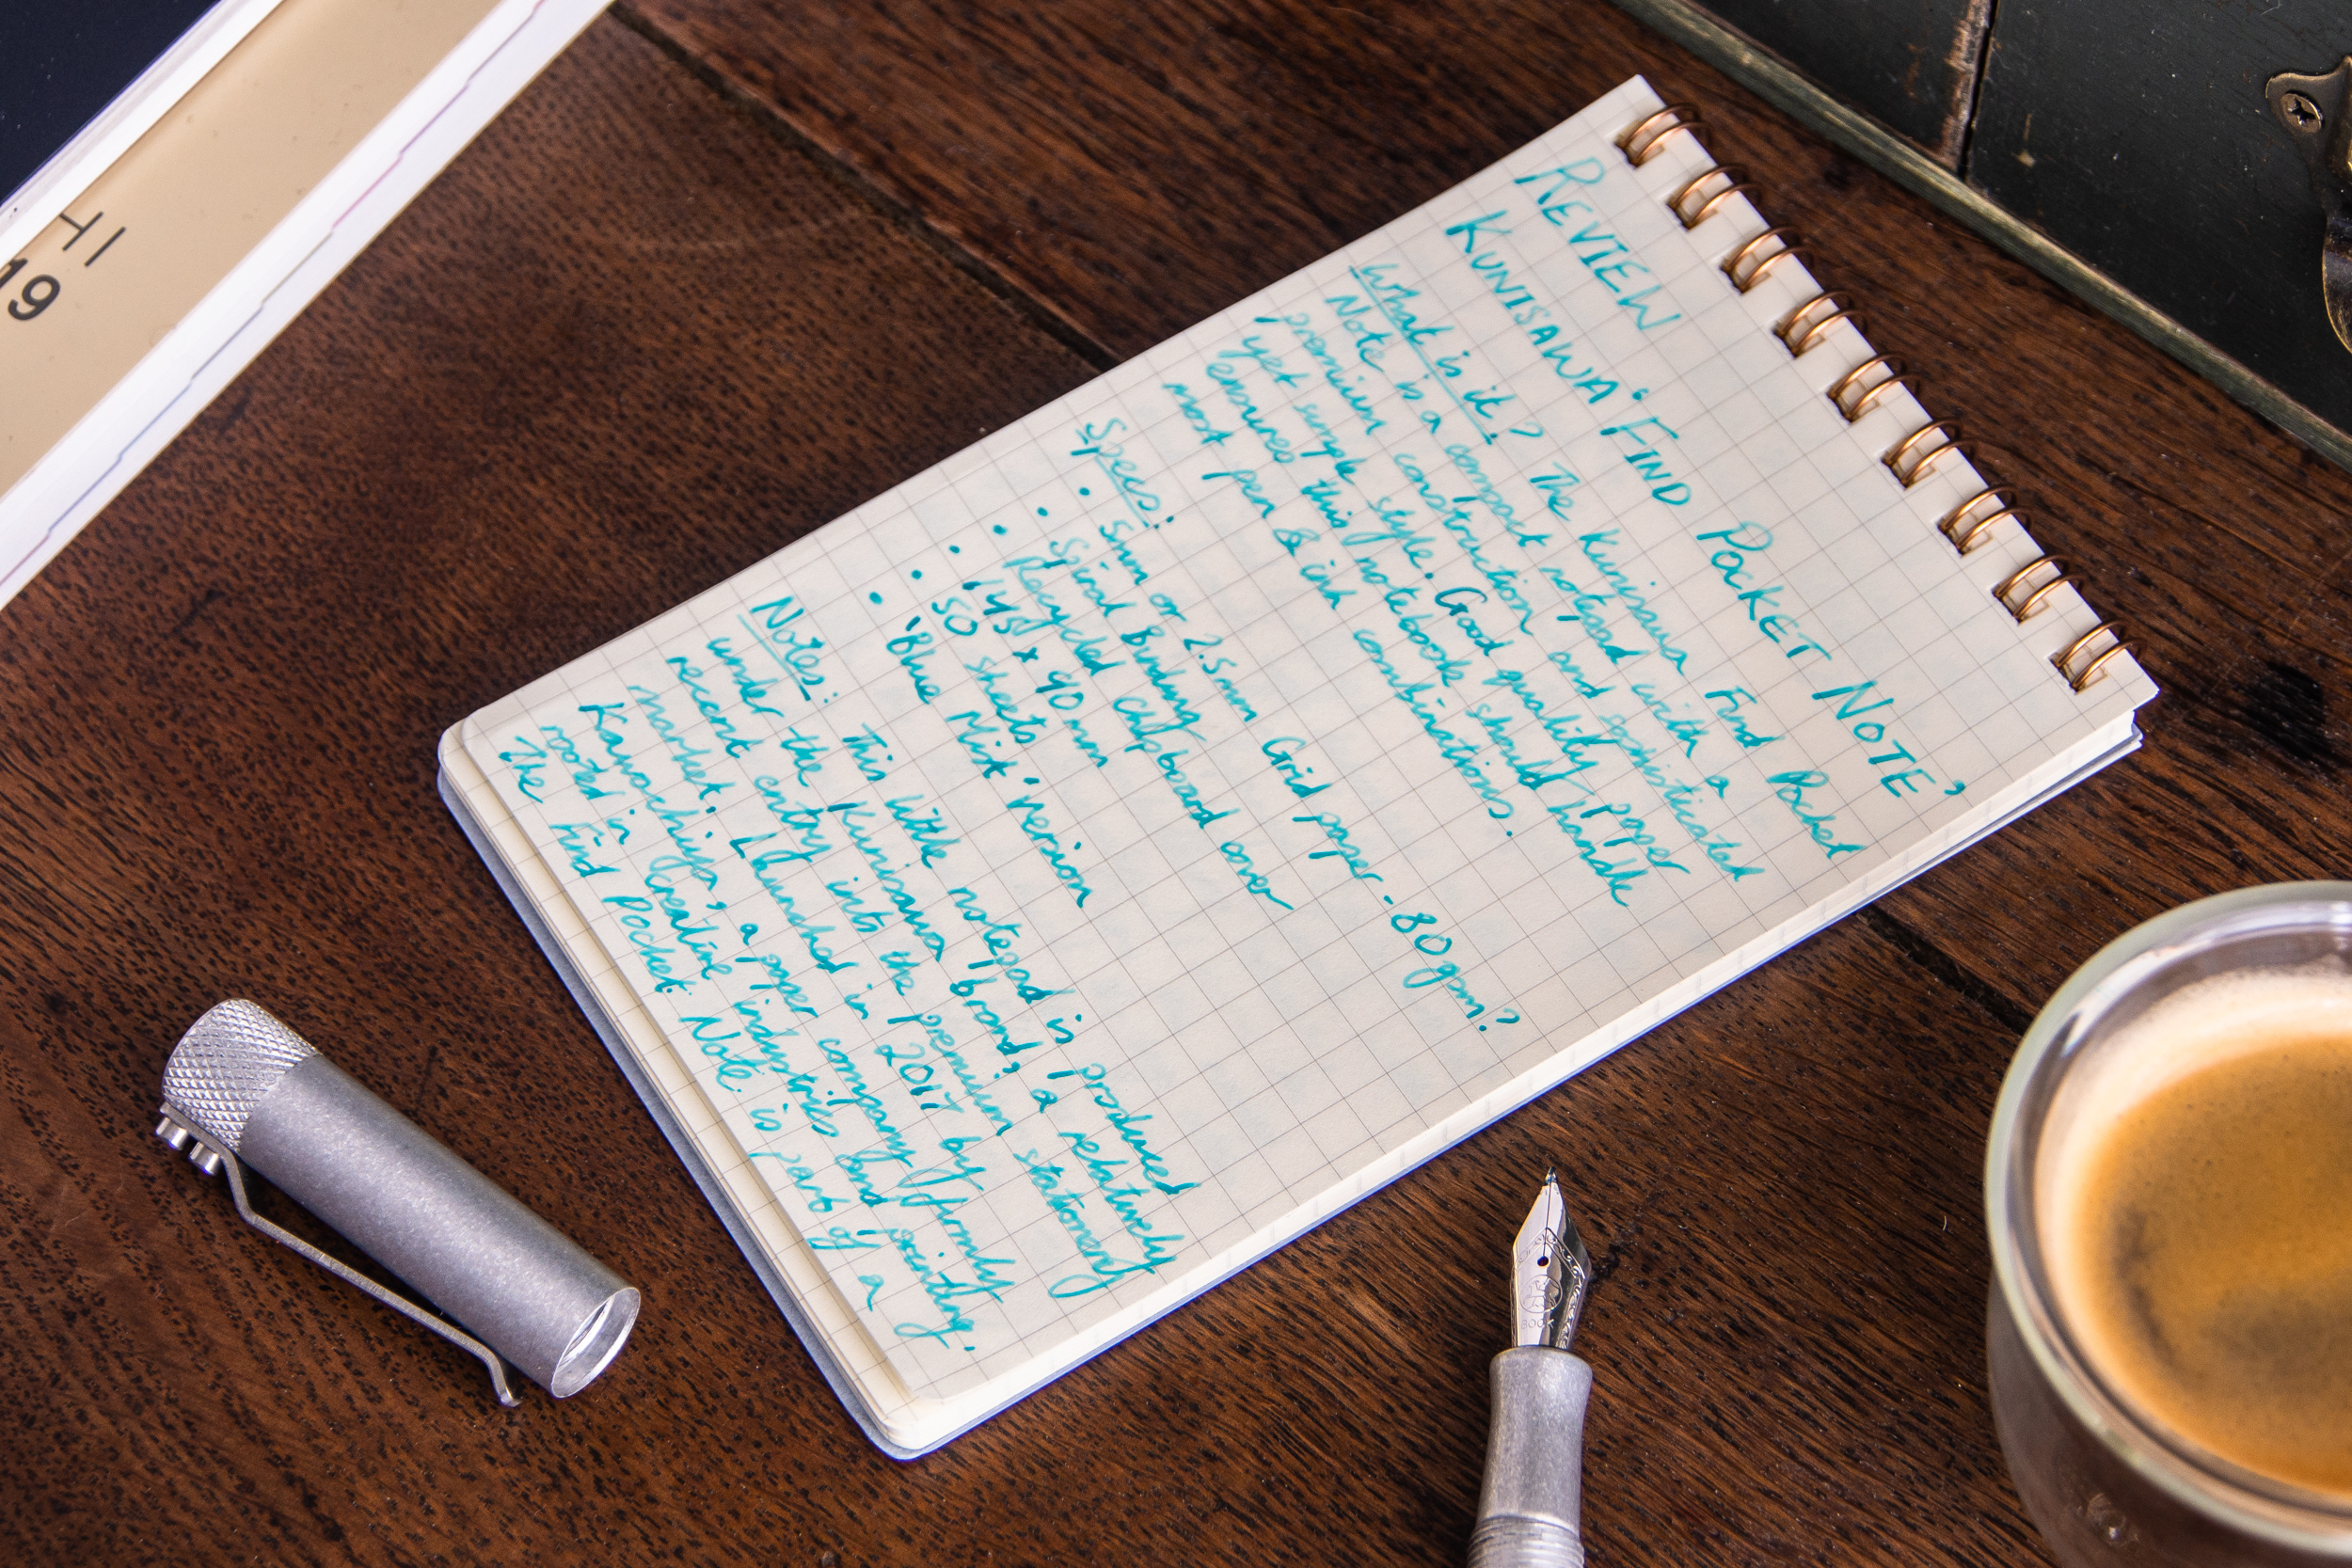 REVIEW
KUNISAWA 'FIND POCKET NOTE'
What is it? The Kunisawa Find Pocket
Note is a compact notepad with a
premium construction and sophisticated
yet simple style. Good quality paper
ensures this notebook should handle
most pen & ink combinations.
Specs:
• 5mm or 2.5mm Grid paper - 80gsm?
• Spiral Binding
• Recycled chipboard cover
• 145 x 90mm
• 50 sheets
• 'Blue Mist' Version
Notes: This little notepad is produced
under the Kunisawa brand, a relatively
recent entry into the premium stationery
market. Launched in 2017 by
Kawachiya, a paper company firmly
rooted in creative industries and printing.
The Find Pocket Note is part of a
HI
19